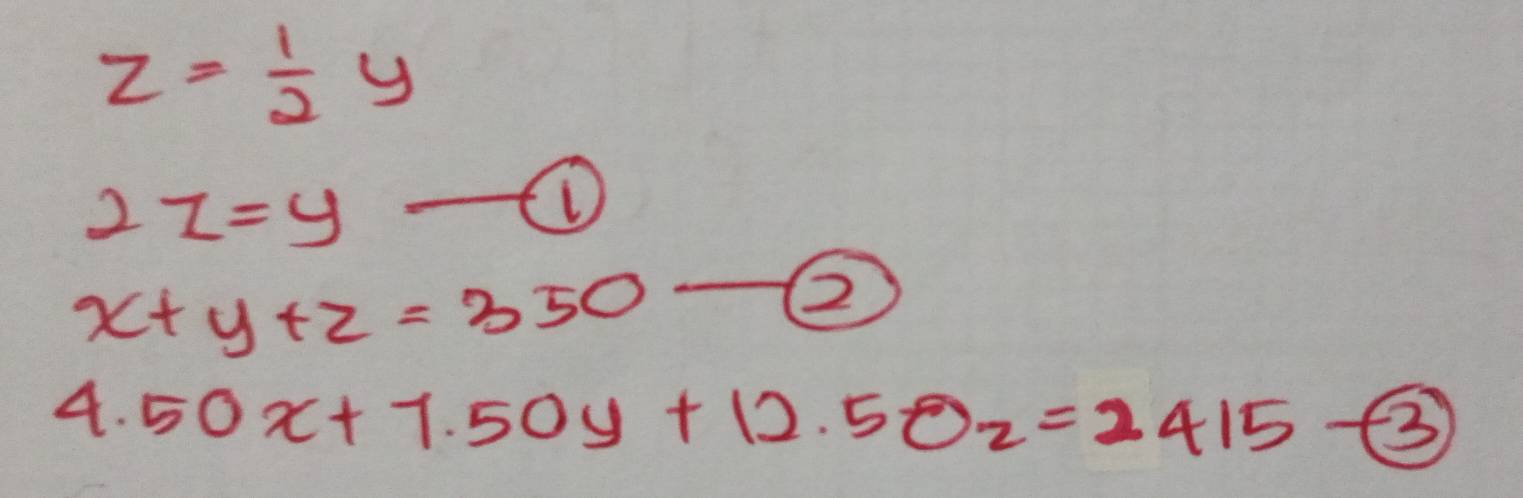 z = 1/2 y
2z = y — ①
x + y + z = 350 — ②
4.50x + 7.50y + 12.50z = 2415 — ③